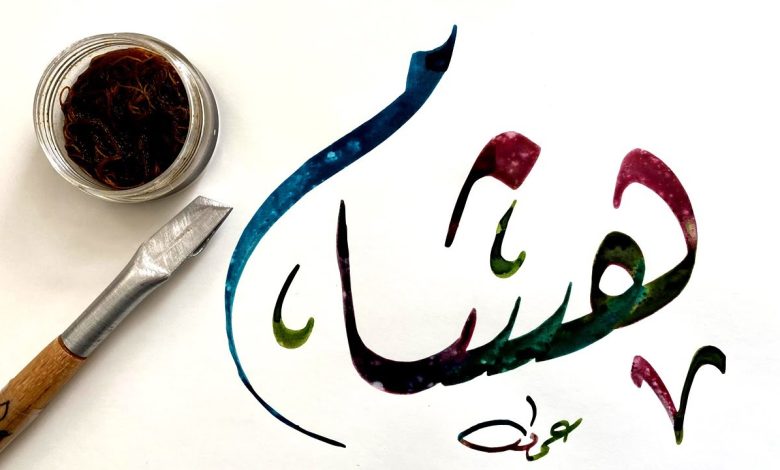 هشام